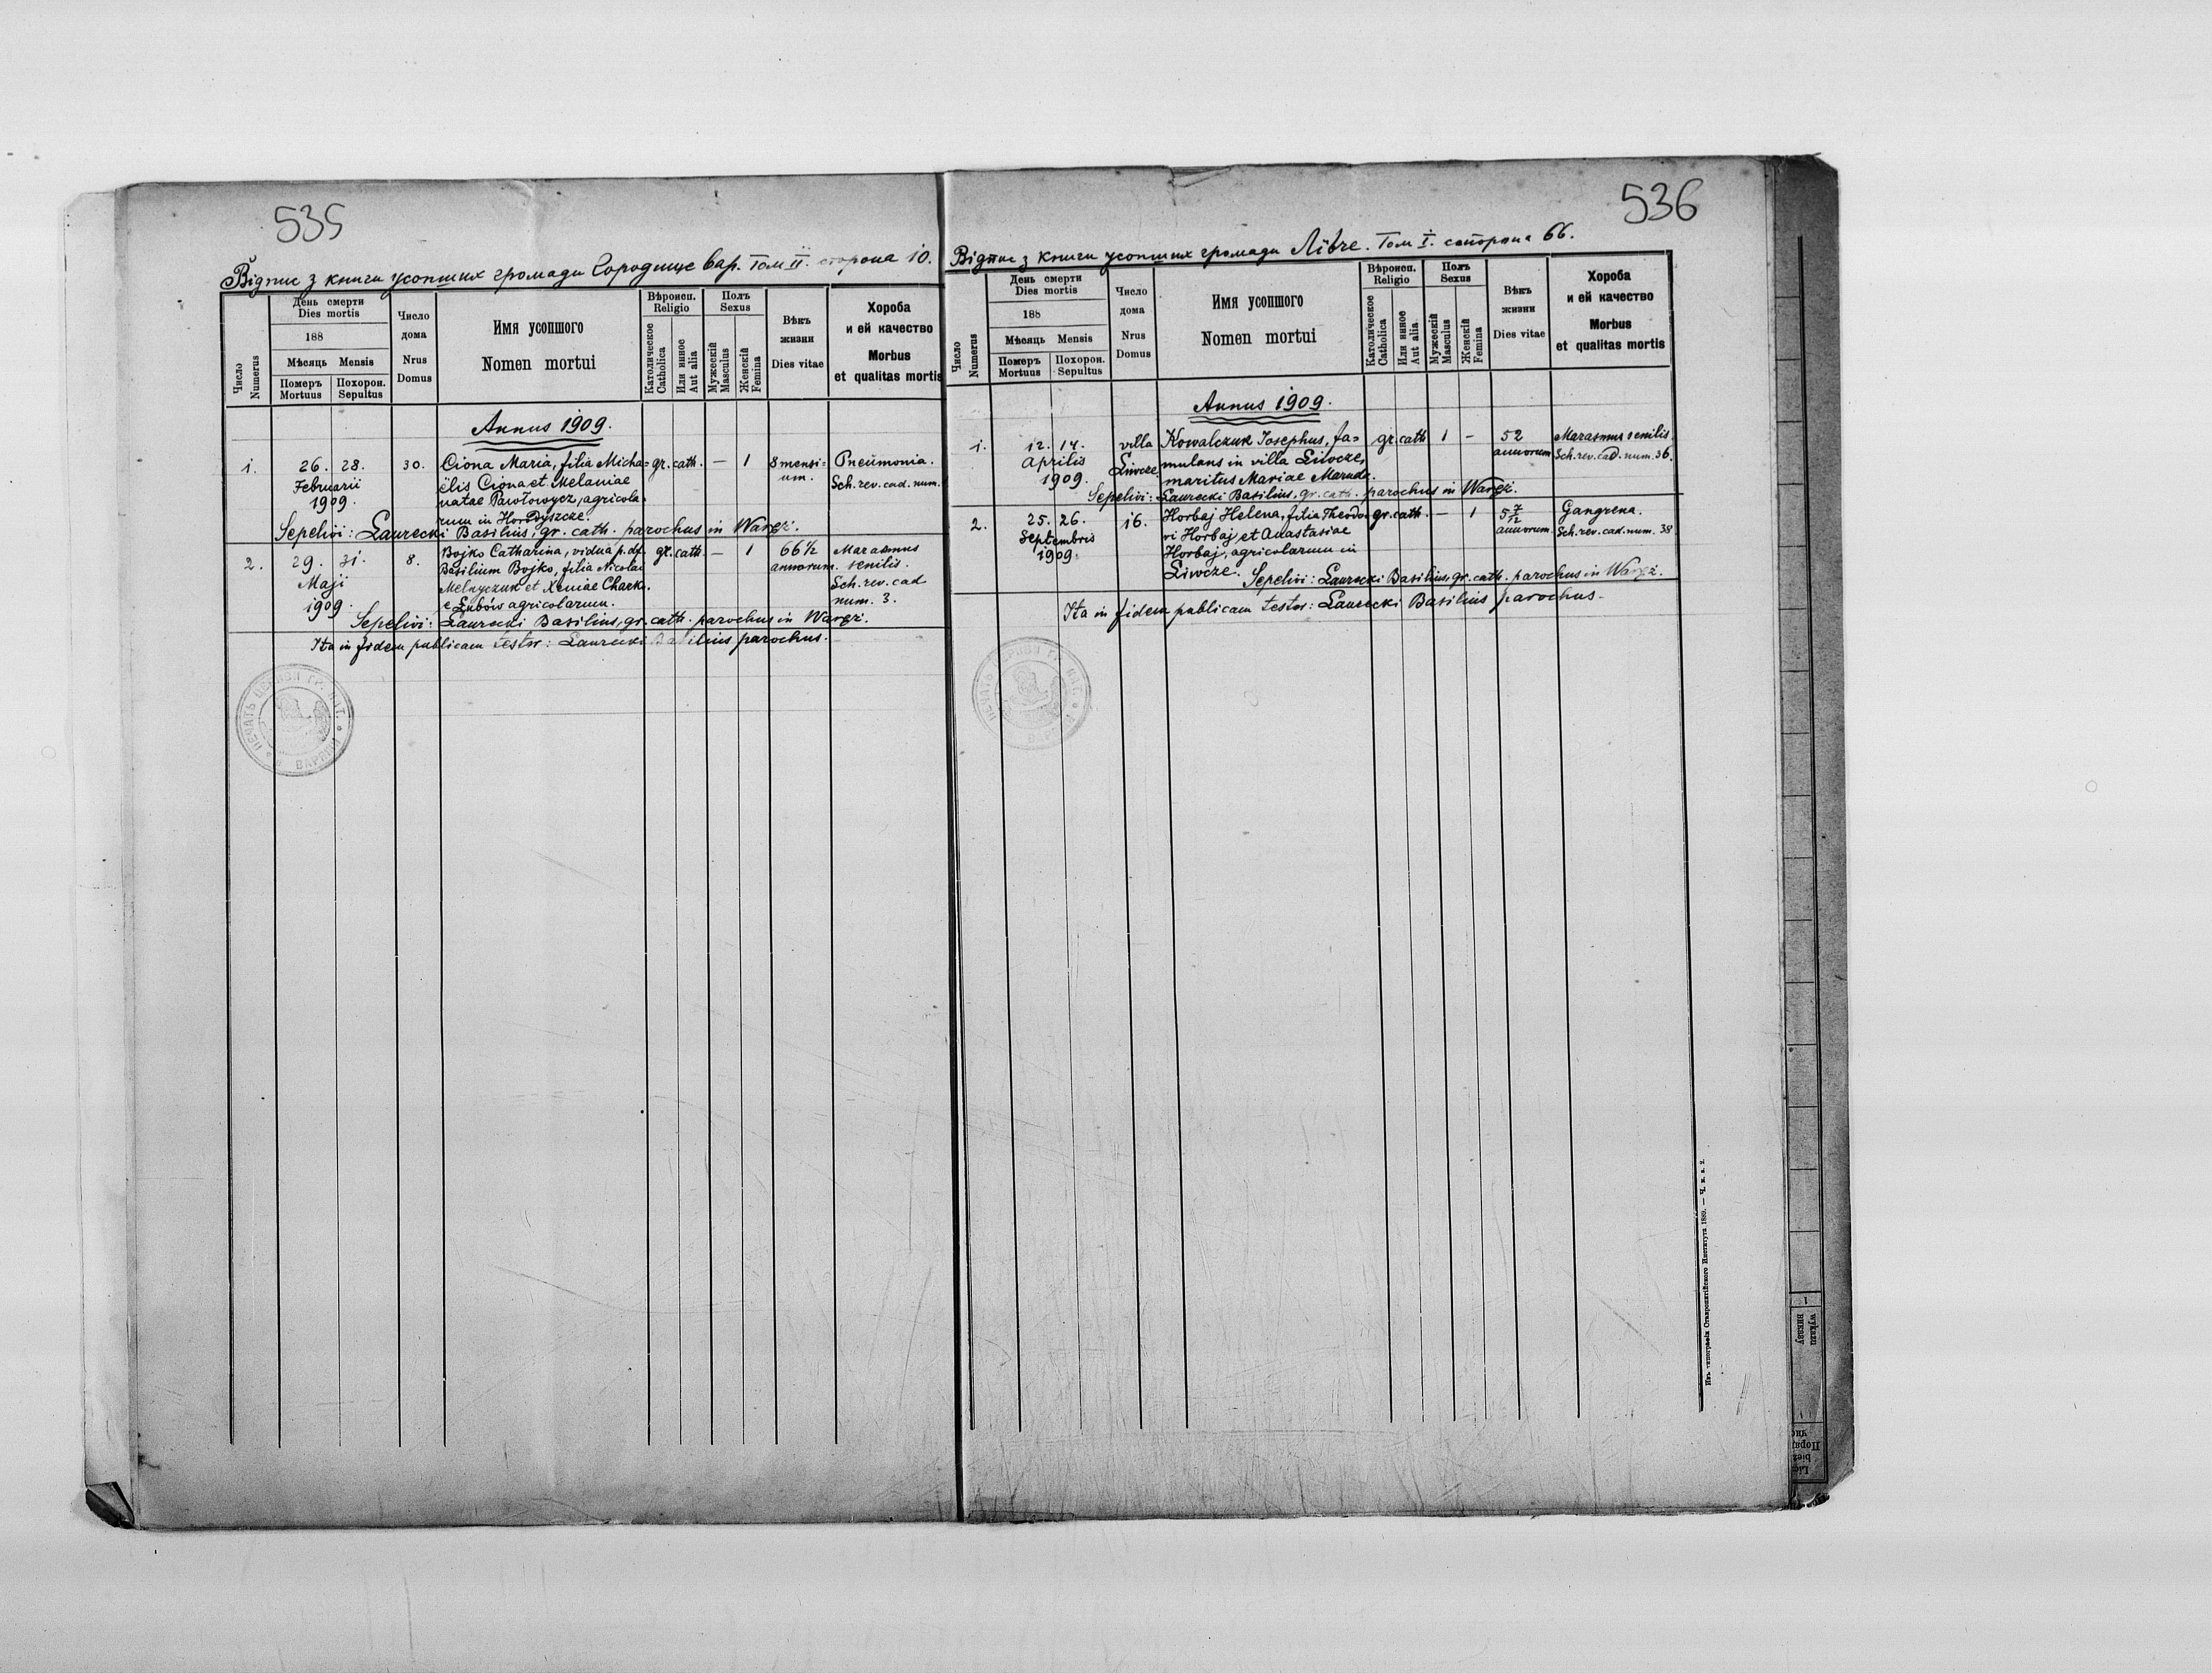 535
Відпис з книги усопших громади Городище вар. Том II. сторона 10.
Число
Numerus
День смерти
Dies mortis
188
Мѣсяць Mensis
Померъ
Mortuus
Похорон.
Sepultus
Число
дома
Nrus
Domus
Имя усопшого
Nomen mortui
Вѣроисп.
Religio
Католическое
Catholica
Или инное
Aut alia
Полъ
Sexus
Мужескій
Masculus
Женскій
Femina
Вѣкъ
жизни
Dies vitae
Хороба
и ей качество
Morbus
et qualitas mortis
Annus 1909.
1. 26. 28. 30. Ciona Maria, filia Micha= gr. cath. — 1 8 mensi= Pneumonia.
Februarii ëlis Ciona et Melaniae um. Sch. rev. cad. num.
1909. natae Pawłowycz, agricola=
rum in Horodyszcze.
Sepelivi: Laurecki Basilius, gr. cath. parochus in Waręż.
2. 29. 31. 8. Bojko Catharina, vidua p. df. gr. cath. — 1 66½ Marasmus
Basilium Bojko, filia Nicolai annorum. senilis.
Maji Melnyczuk et Xeniae Sch. rev. cad
1909. e Łubów agricolarum. num. 3.
Sepelivi: Laurecki Basilius, gr. cath. parochus in Waręż.
Ita in fidem publicam testor: Laurecki Basilius parochus.
ПЕЧАТЬ ЦЕРКВИ ГР. КАТ.
536
Відпис з книги усопших громади Лівче. Том I. сторона 66.
Число
Numerus
День смерти
Dies mortis
188
Мѣсяць Mensis
Померъ
Mortuus
Похорон.
Sepultus
Число
дома
Nrus
Domus
Имя усопшого
Nomen mortui
Вѣроисп.
Religio
Католическое
Catholica
Или инное
Aut alia
Полъ
Sexus
Мужескій
Masculus
Женскій
Femina
Вѣкъ
жизни
Dies vitae
Хороба
и ей качество
Morbus
et qualitas mortis
Annus 1909.
1. 12. 14. villa Kowalczuk Josephus, fa= gr. cath 1 — 52 Marasmus senilis.
Aprilis Liwcze mulans in villa Liwcze, annorum Sch. rev. cad. num. 36.
1909. maritus Mariae
Sepelivi: Laurecki Basilius, gr. cath. parochus in Waręż.
2. 25. 26. 16. Horbaj Helena, filia Theodo= gr. cath. — 1 5 7/12 Gangrena.
Septembris ri Horbaj et Anastasiae annorum. Sch. rev. cad. num. 38
1909. Horbaj, agricolarum in
Liwcze. Sepelivi: Laurecki Basilius, gr. cath. parochus in Waręż.
Ita in fidem publicam testor: Laurecki Basilius parochus.
ПЕЧАТЬ ЦЕРКВИ ГР. КАТ.
Изъ типографіи Ставропигійского Института 1889. — Ч. в. в. 2.
1
wykazu
виказу